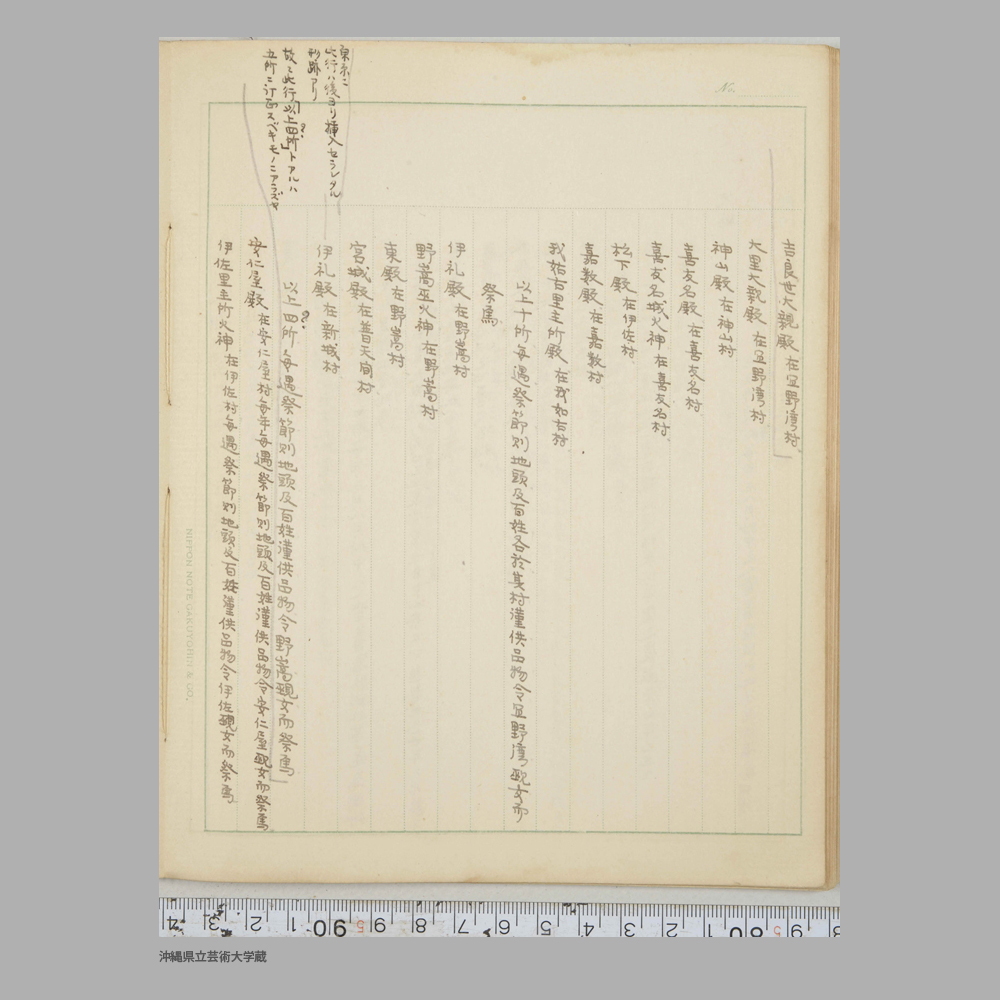 No.
吉良世大親殿 在宜野湾村
大里大親殿 在宜野湾村
神山殿 在神山村
喜友名殿 在喜友名村
喜友名城火神 在喜友名村
松下殿 在伊佐村
嘉数殿 在嘉数村
我如古里主所殿 在我如古村
以上十所毎遇祭節則地頭及百姓各於其村謹供品物令宜野湾巫女而
祭焉
伊礼殿 在野嵩村
野嵩巫火神 在野嵩村
東殿 在野嵩村
宮城殿 在普天間村
伊礼殿 在新城村
以上四所毎遇祭節則地頭及百姓謹供品物令野嵩巫女而祭焉
?
安仁屋殿 在安仁屋村毎年毎遇祭節則地頭及百姓謹供品物令安仁屋巫女而祭焉
伊佐里主所火神 在伊佐村毎遇祭節則地頭及百姓謹供品物令伊佐巫女而祭焉
東京ニ
此行ハ後ヨリ挿入セラレタル
形跡アリ
故ニ此行「以上四所」トアルハ
?
五所ニ訂正スベキモノニアラズヤ
NIPPON NOTE GAKUYOHIN & CO.
沖縄県立芸術大学蔵